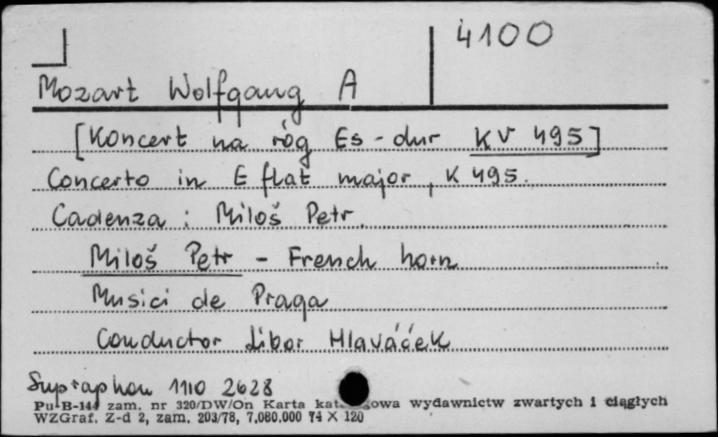 4100
Mozart Wolfgang A
[Koncert na róg Es-dur KV 495]
Concerto in E flat major, K 495.
Cadenza: Miloš Petr.
Miloš Petr - French horn
Musici de Praga
Conductor Libor Hlaváček
Supraphon 1110 2628
Pu-B-144 zam. nr 320/DW/On Karta kat owa wydawnictw zwartych i ciągłych
WZGraf. Z-d 2, zam. 203/78, 7.080.000 74 X 120